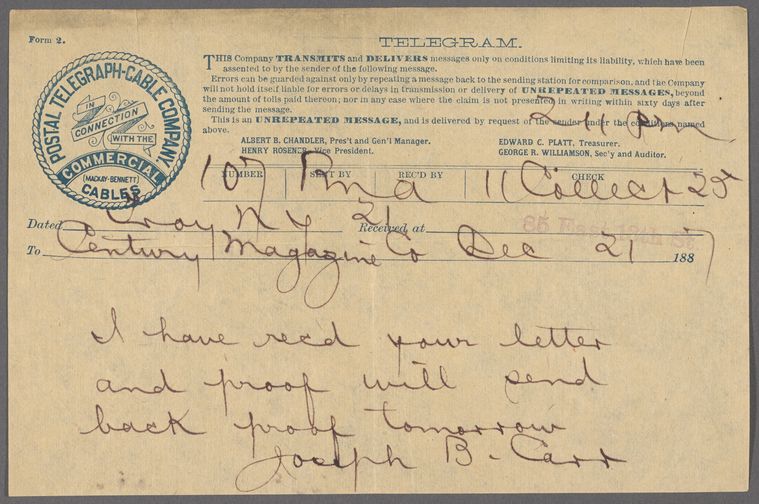 Form 2.
TELEGRAM.
POSTAL TELEGRAPH-CABLE COMPANY.
IN
CONNECTION
WITH THE
COMMERCIAL
(MACKAY-BENNETT)
CABLES
THIS Company TRANSMITS and DELIVERS messages only on conditions limiting its liability, which have been
assented to by the sender of the following message.
Errors can be guarded against only by repeating a message back to the sending station for comparison, and the Company
will not hold itself liable for errors or delays in transmission or delivery of UNREPEATED MESSAGES, beyond
the amount of tolls paid thereon; nor in any case where the claim is not presented in writing within sixty days after
sending the message.
This is an UNREPEATED MESSAGE, and is delivered by request of the sender under the conditions named
above.
2-11 Pm
ALBERT B. CHANDLER, Pres't and Gen'l Manager.
HENRY ROSENER, Vice President.
EDWARD C. PLATT, Treasurer.
GEORGE R. WILLIAMSON, Sec'y and Auditor.
NUMBER SENT BY REC'D BY CHECK
107 11 Collect 25
Dated Troy N Y 21 Received at 85 East 12th St
To Century Magazine Co Dec 21 1887
I have recd your letter
and proof will send
back proof tomorrow
Joseph B. Carr